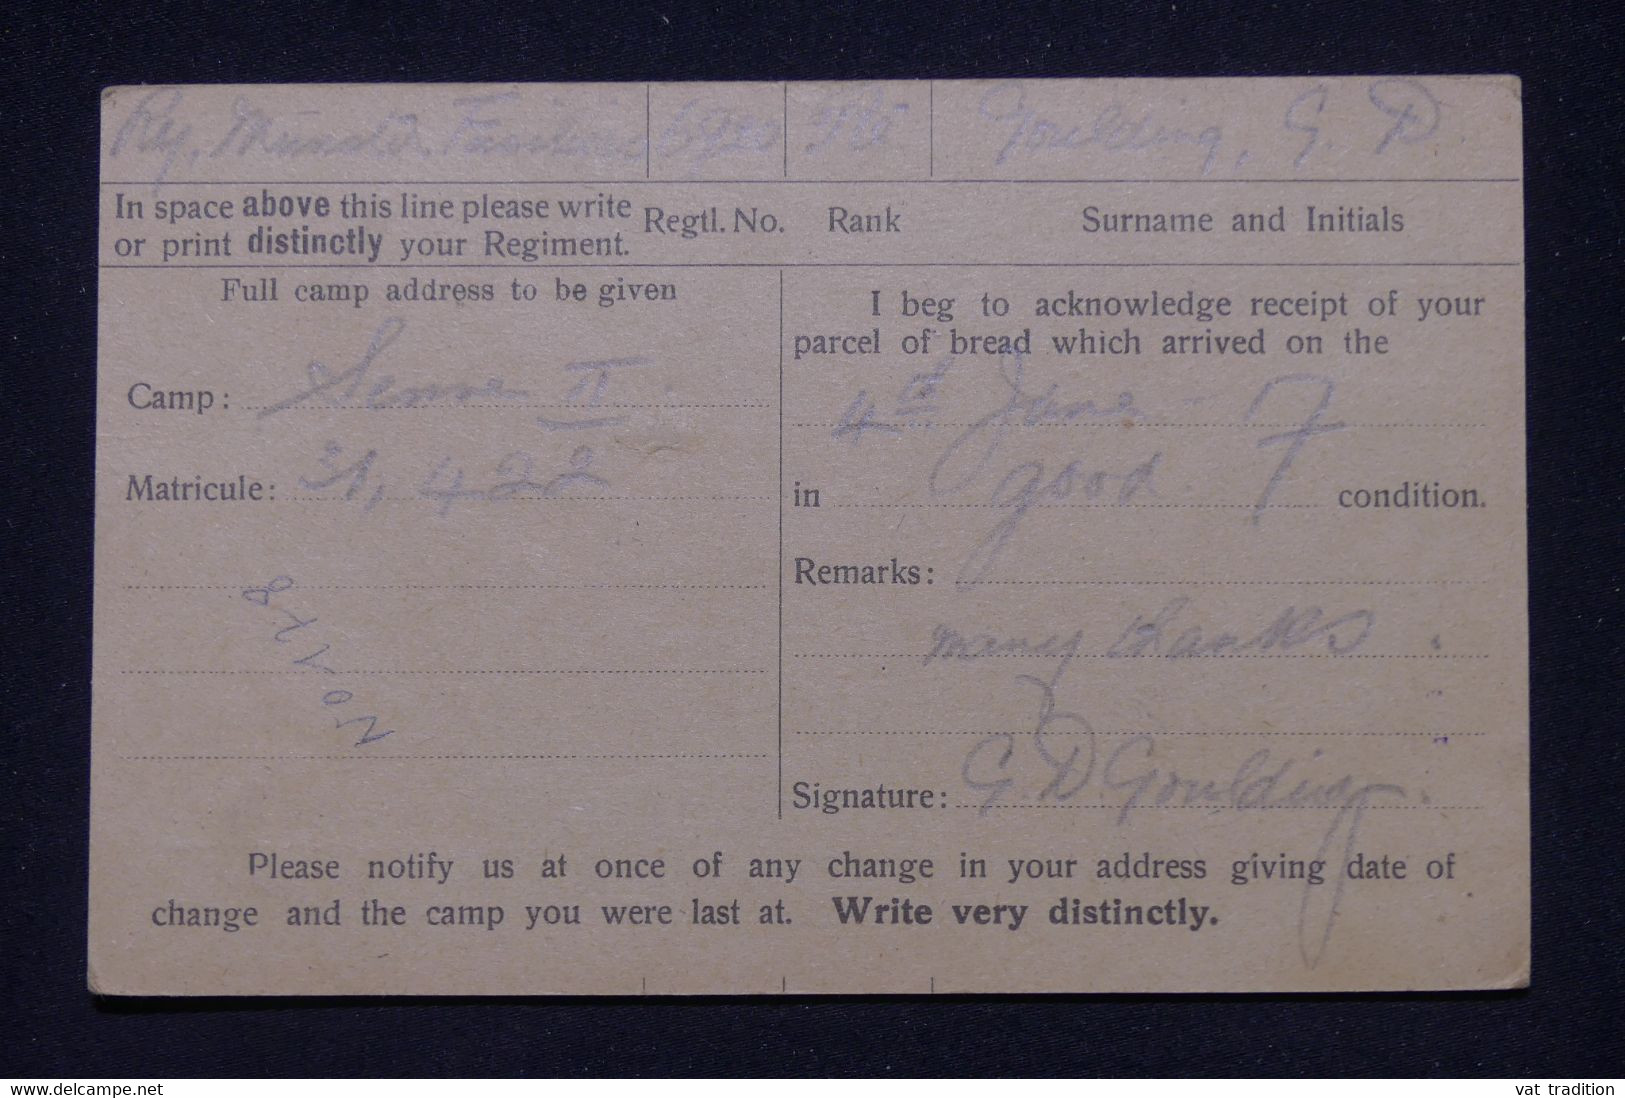 Ry. Munster Fusiliers 6920 Pte Goulding, G. D.
In space above this line please write
or print distinctly your Regiment.
Regtl. No. Rank Surname and Initials
Full camp address to be given
Camp: II.
Matricule: 31,422
I beg to acknowledge receipt of your
parcel of bread which arrived on the
4th June 
in good condition.
Remarks:
many thanks.
Signature: G. D. Goulding.
Please notify us at once of any change in your address giving date of
change and the camp you were last at. Write very distinctly.
www.delcampe.net
vat tradition